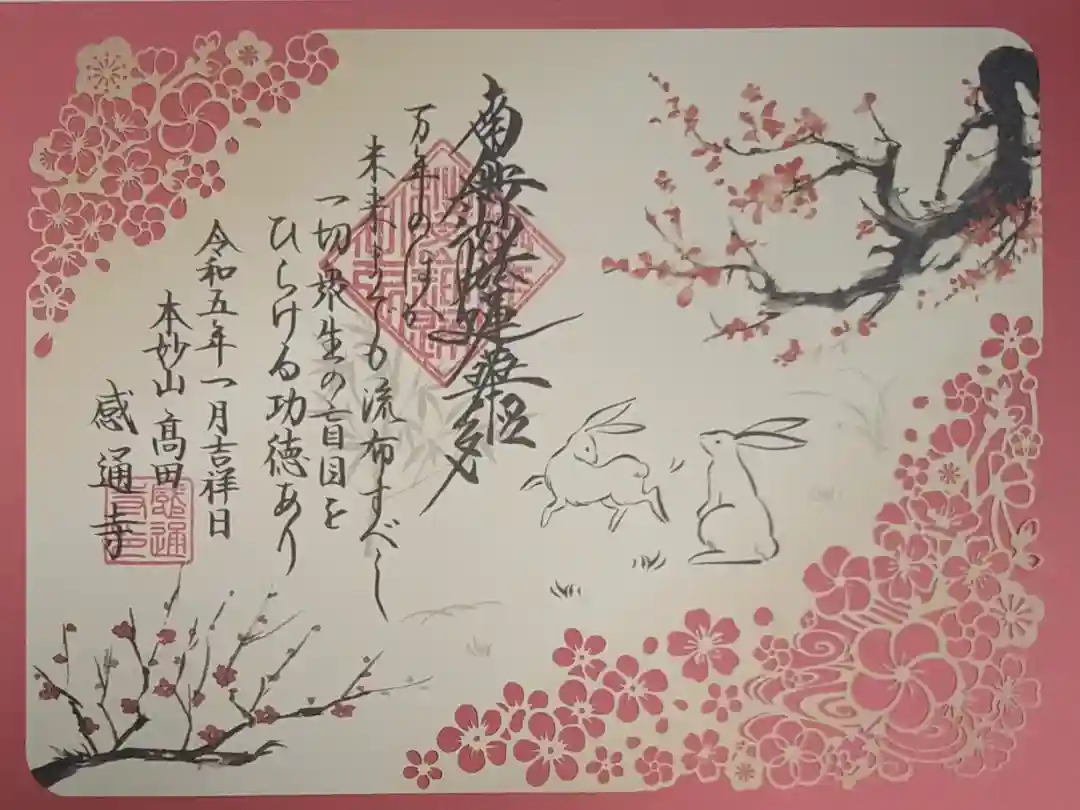 南無妙法蓮華経
万年のほか
未来までも流布すべし
一切衆生の盲目を
ひらける功徳あり
令和五年一月吉祥日
本妙山 髙田
感通寺
感通
寺印